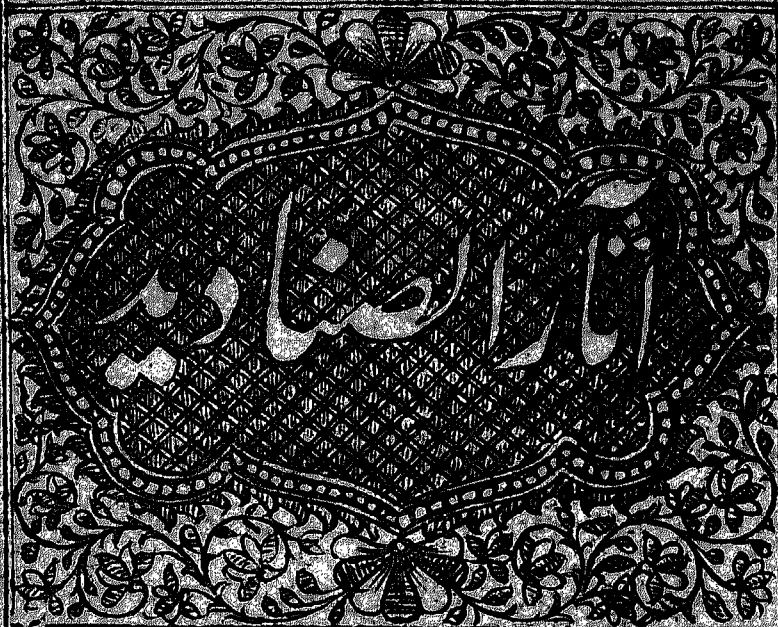 آثار الصنادید